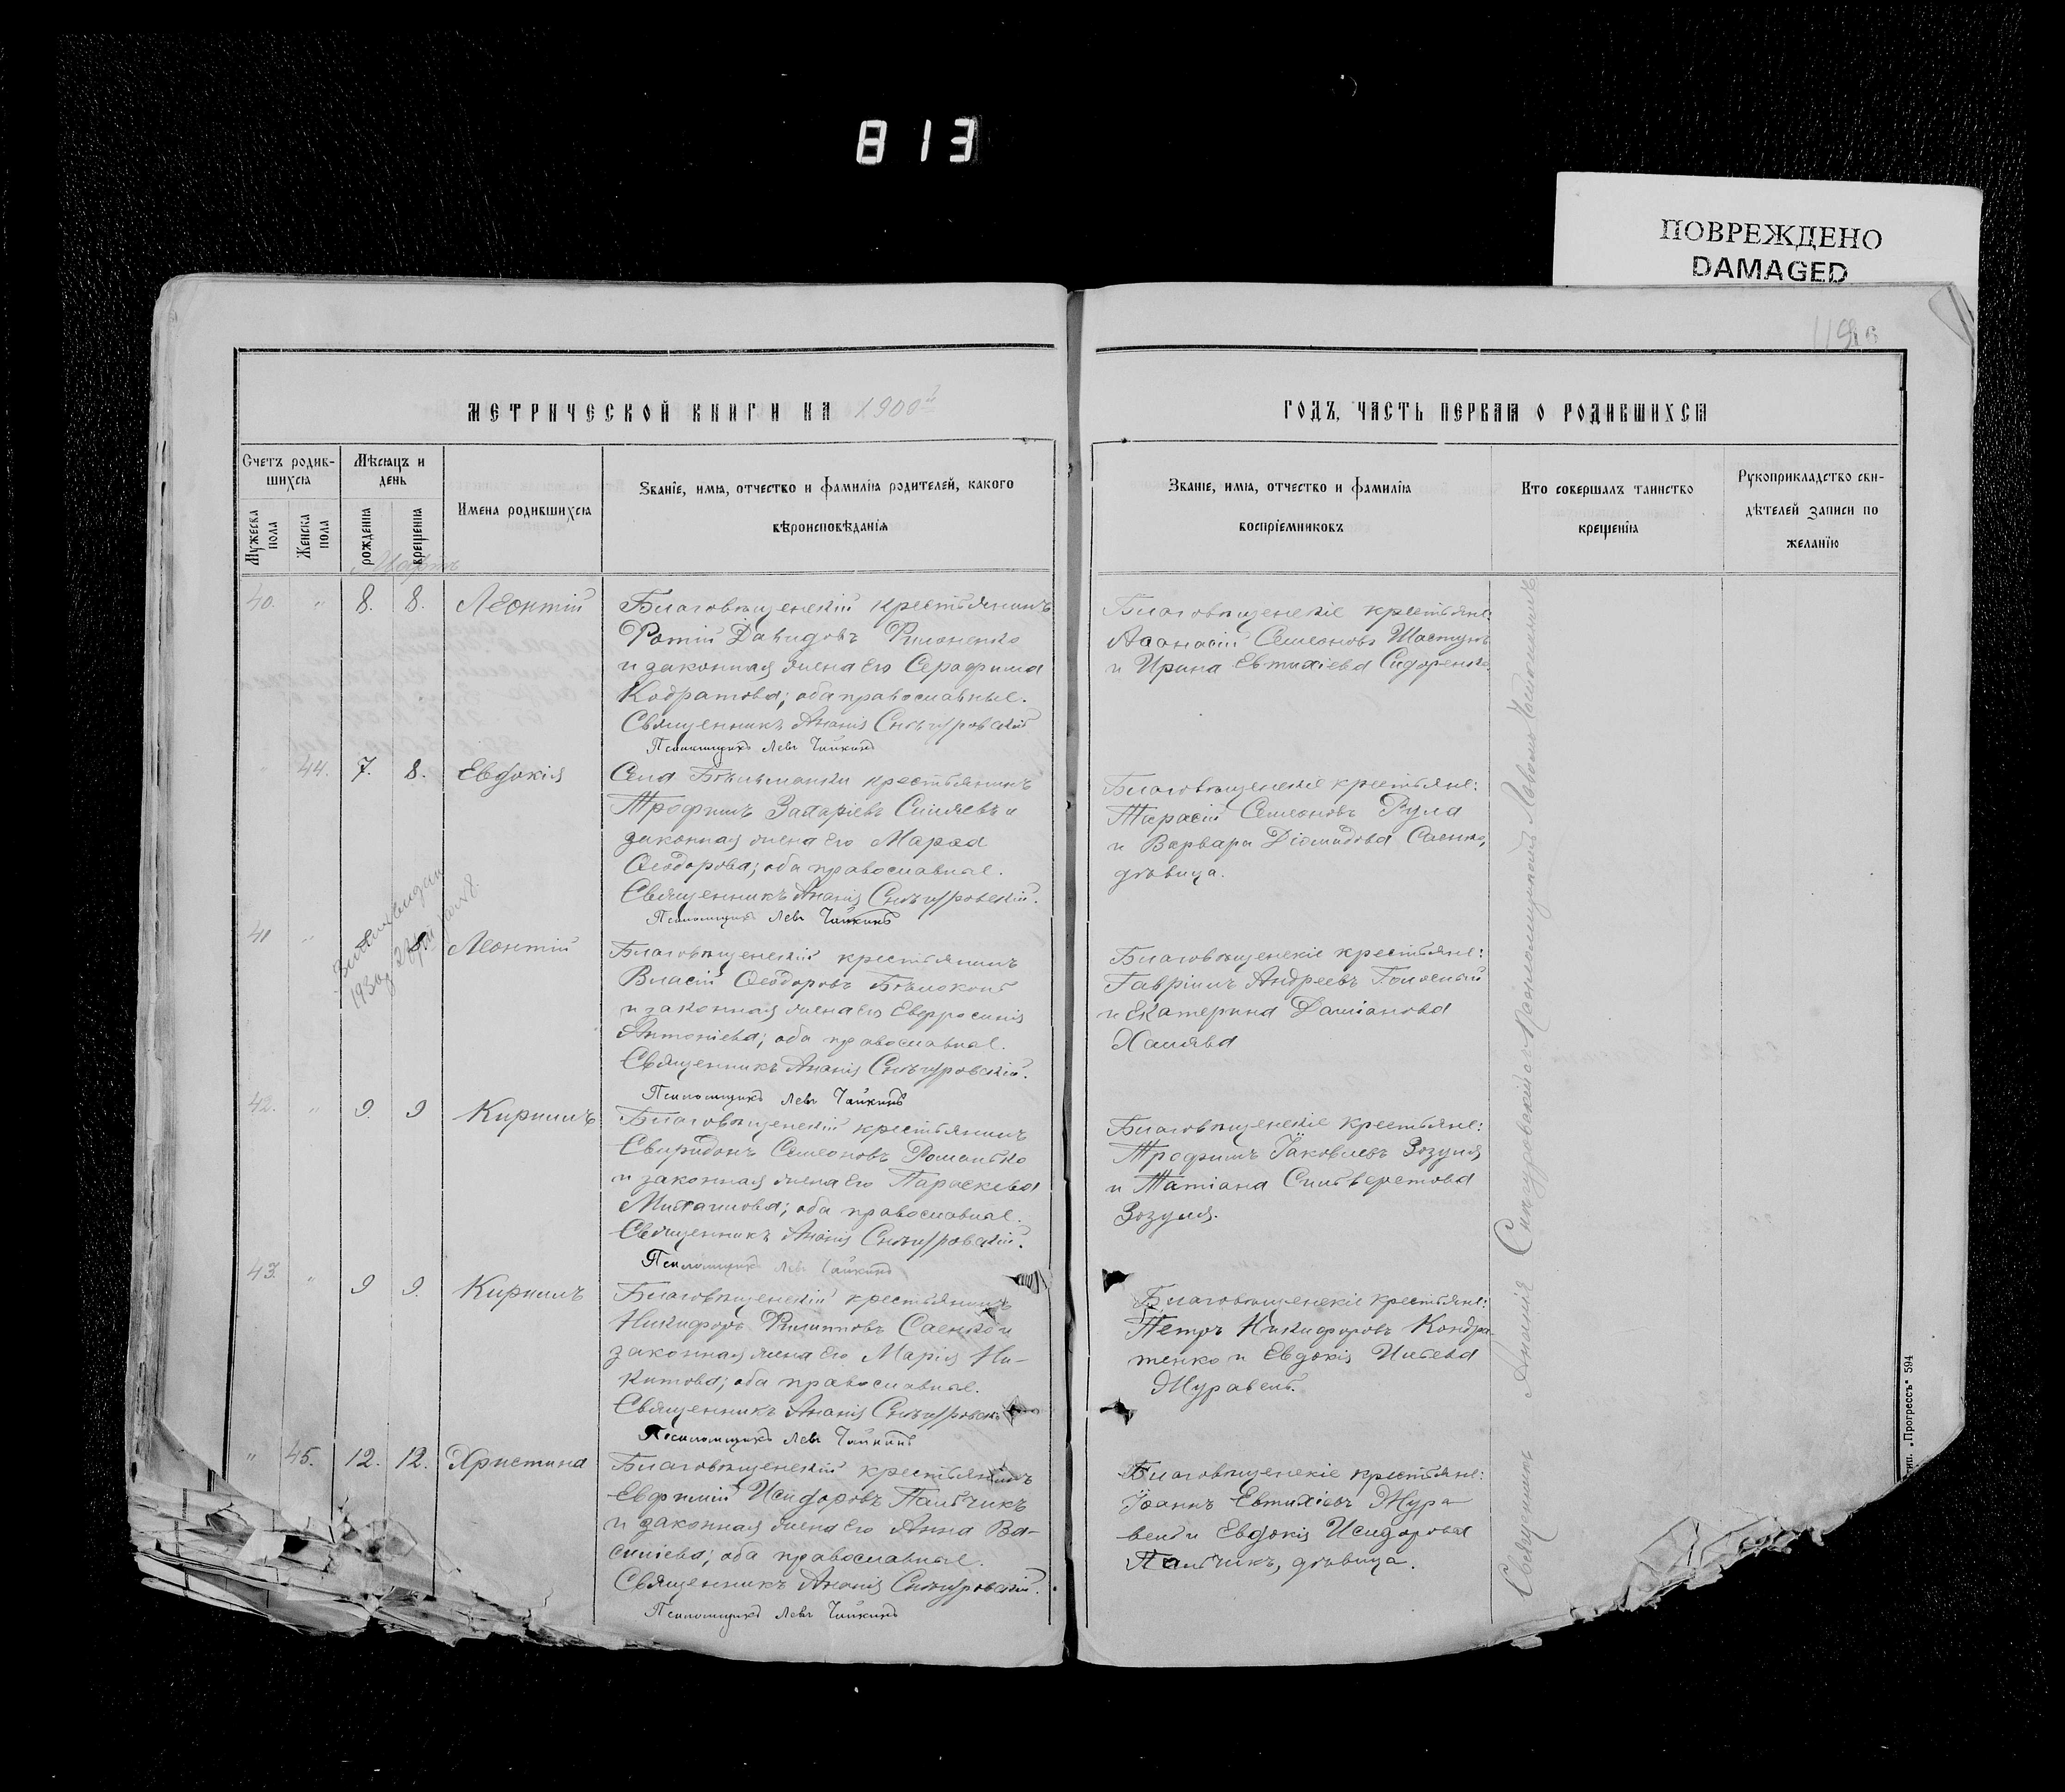 813
ПОВРЕЖДЕНО
DAMAGED
МЕТРИЧЕСКОЙ КНИГИ НА 1900й
ГОДЪ, ЧАСТЬ ПЕРВАЯ О РОДИВШИХСЯ
Счетъ родив-
шихся
Мужеска пола
Женска пола
Мѣсяцъ и
день
рожденія
крещенія
Имена родившихся
Званіе, имя, отчество и фамилія родителей, какого
вѣроисповѣданія
Званіе, имя, отчество и фамилія
воспріемниковъ
Кто совершалъ таинство
крещенія
Рукоприкладство сви-
дѣтелей записи по
желанію
Мартъ
40. " 8. 8. Леонтій
Благовѣщенскій крестьянинъ
Фотій Давидовъ Филоненко
и законная жена его Серафима
Кодратова; оба православные.
Священникъ Ананія Снѣгуровскій
Псаломщикъ Левъ Чайкинъ
Благовѣщенскіе крестьяне:
Аѳанасій Семеоновъ Шастунъ
и Ирина Евтихіева Сидоренко.
" 44. 7. 8. Евдокія
Села Бѣльманки крестьянинъ
Трофимъ Захаріевъ Силяевъ и
законная жена его Марѳа
Ѳеодорова; оба православные.
Священникъ Ананія Снѣгуровскій.
Псаломщикъ Левъ Чайкинъ
Благовѣщенскіе крестьяне:
Тарасій Семеоновъ Рула
и Варвара Діомидова Саенко,
дѣвица.
41 " 8 8. Леонтій
Благовѣщенскій крестьянинъ
Власій Ѳеодоровъ Бѣлоконь
и законная жена его Евфросинія
Антоніева; оба православные.
Священникъ Ананія Снѣгуровскій.
Псаломщикъ Левъ Чайкинъ
Благовѣщенскіе крестьяне:
Гавріилъ Андреевъ Голосный
и Екатерина Даміанова
Халява
42. " 9. 9 Кириллъ
Благовѣщенскій крестьянинъ
Свиридонъ Семеоновъ Романько
и законная жена его Параскева
Михаилова; оба православные.
Священникъ Ананія Снѣгуровскій.
Псаломщикъ Левъ Чайкинъ
Благовѣщенскіе крестьяне:
Трофимъ Іаковлевъ Зозуля
и Татіана Сильверстова
Зозуля.
43. " 9 9. Кириллъ
Благовѣщенскій крестьянинъ
Никифоръ Филипповъ Саенко и
законная жена его Марія Ни-
китова; оба православные.
Священникъ Ананія Снѣгуровскі
Псаломщикъ Левъ Чайкинъ
Благовѣщенскіе крестьяне:
Петръ Никифоровъ Кондра-
тенко и Евдокія Ильева
Журавель.
" 45. 12. 12. Христина
Благовѣщенскій крестьянинъ
Евфимій Исидоровъ Пальчикъ
и законная жена его Анна Ва-
силіева; оба православные.
Священникъ Ананія Снѣгуровскій.
Псаломщикъ Левъ Чайкинъ
Благовѣщенскіе крестьяне:
Іоаннъ Евтихіевъ Жура
вель и Евдокія Исидорова
Пальчикъ, дѣвица.
Священникъ Ананія Снѣгуровскій съ Псаломщикомъ Львомъ Чайкинымъ
тип. „Прогрессъ" 594